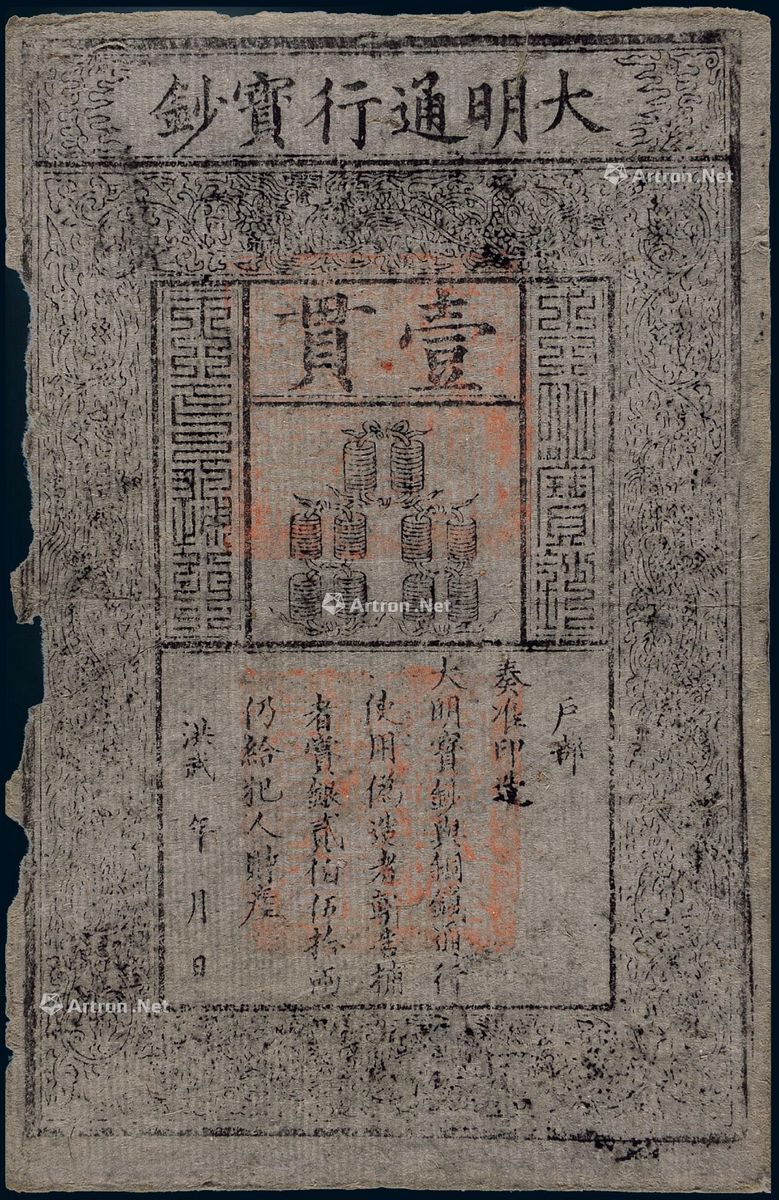 大明通行寶鈔
Artron.Net
壹貫
Artron.Net
戶部
奏准印造
大明寶鈔與銅錢通行
使用偽造者斬告捕
者賞銀貳伯伍拾兩
仍給犯人財產
洪武 年 月 日
Artron.Net